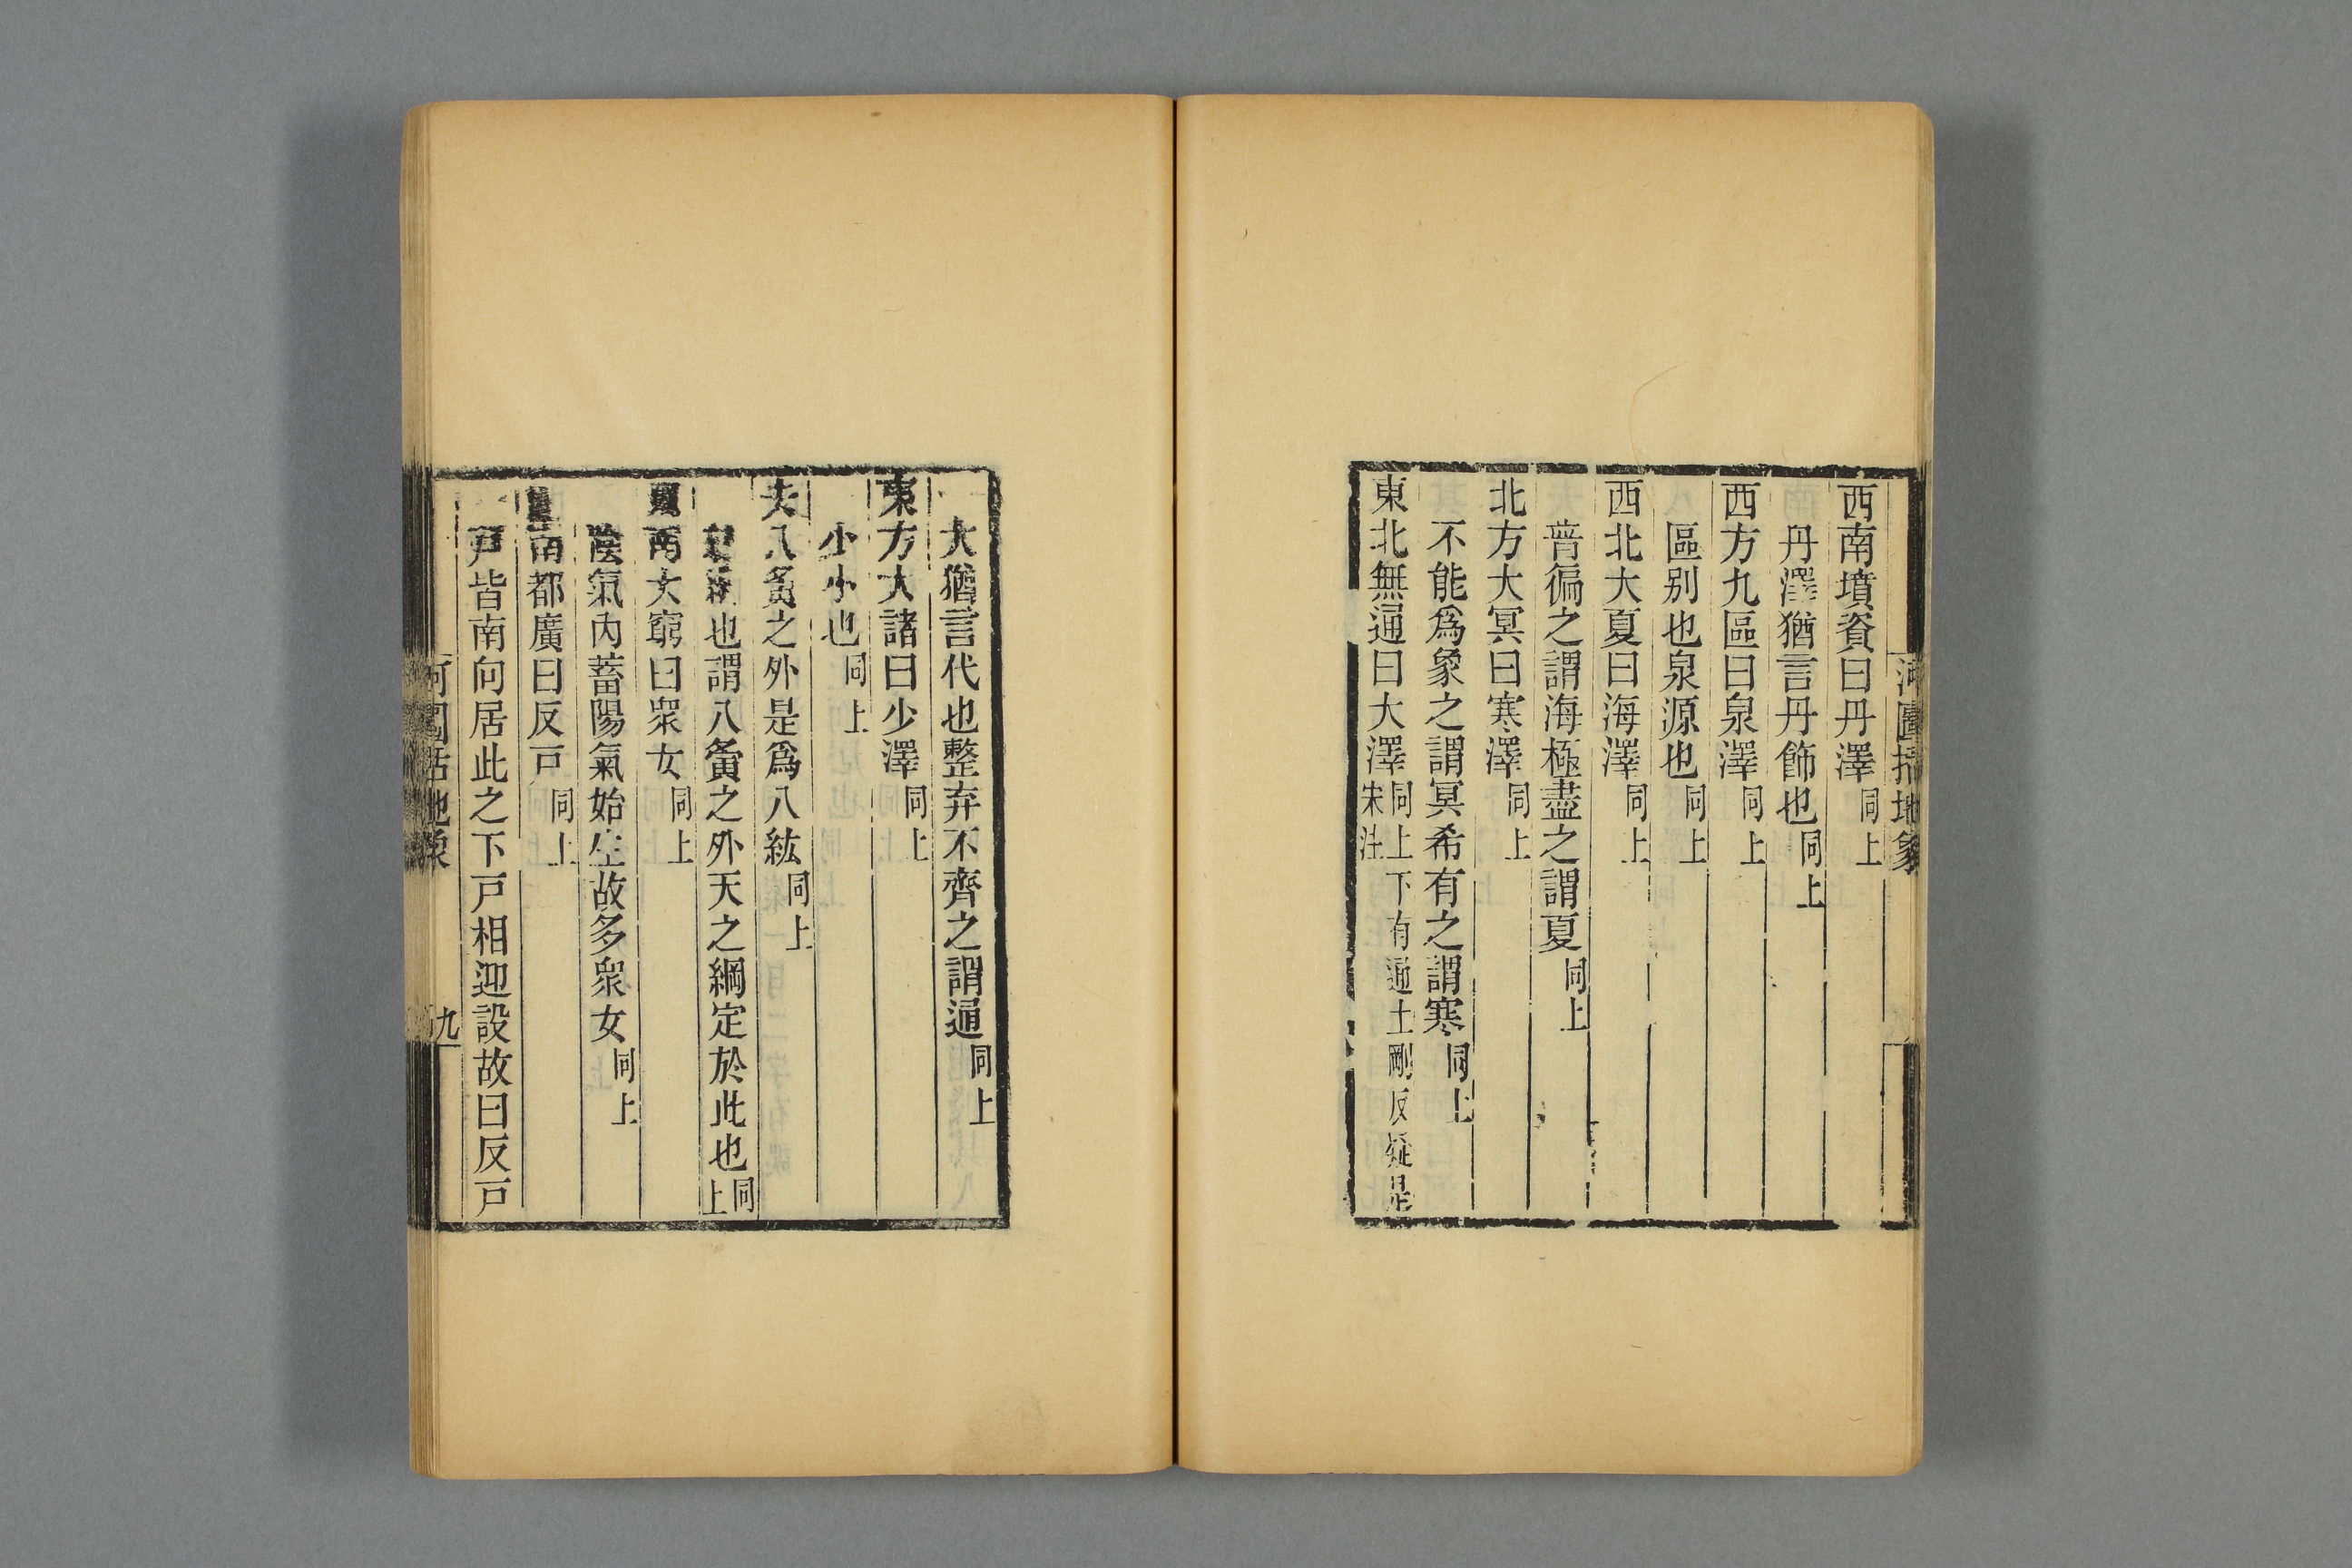 河圖括地象
西南墳資曰丹澤同上
丹澤猶言丹飾也同上
西方九區曰泉澤同上
區别也泉源也同上
西北大夏曰海澤同上
普徧之謂海極盡之謂夏同上
北方大冥曰寒澤同上
不能爲象之謂冥希有之謂寒同上
東北無通曰大澤同上下有通土剛反疑是
宋注
大猶言代也整弃不齊之謂通同上
東方大諸曰少澤同上
少小也同上
夫八夤之外是爲八紘同上
也謂八夤之外天之綱定於此也同上
南大窮曰眾女同上
陰氣內蓄陽氣始生故多眾女同上
南都廣曰反戸同上
戸皆南向居此之下戸相迎設故曰反戸
河圖括地象
九